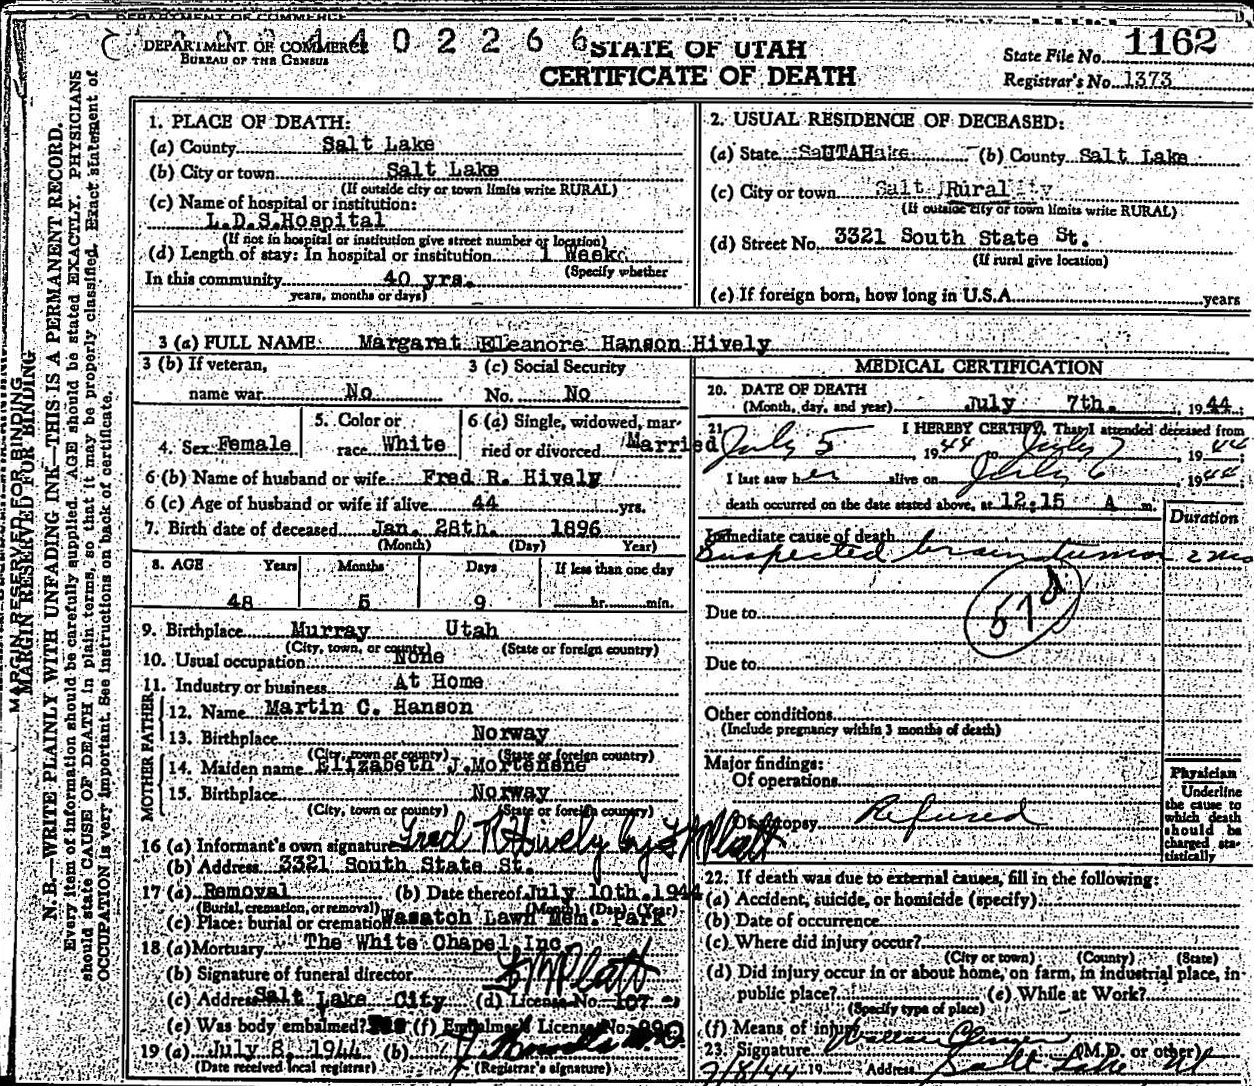 DEPARTMENT OF COMMERCE
BUREAU OF THE CENSUS
4 0 2 2 6 6
STATE OF UTAH
CERTIFICATE OF DEATH
State File No. 1162
Registrar's No. 1373
MARGIN RESERVED FOR BINDING
N. B.—WRITE PLAINLY WITH UNFADING INK—THIS IS A PERMANENT RECORD.
Every item of information should be carefully supplied. AGE should be stated EXACTLY. PHYSICIANS
should state CAUSE OF DEATH in plain terms, so that it may be properly classified. Exact statement of
OCCUPATION is very important. See instructions on back of certificate.
1. PLACE OF DEATH:
(a) County Salt Lake
(b) City or town Salt Lake
(If outside city or town limits write RURAL)
(c) Name of hospital or institution:
L.D.S.Hospital
(If not in hospital or institution give street number or location)
(d) Length of stay: In hospital or institution 1 Week
(Specify whether
In this community 40 yrs.
years, months or days)
2. USUAL RESIDENCE OF DECEASED:
(a) State UTAH (b) County Salt Lake
(c) City or town Rural
(If outside city or town limits write RURAL)
(d) Street No. 3321 South State St.
(If rural give location)
(e) If foreign born, how long in U.S.A. years
3 (a) FULL NAME Margaret Eleanore Hanson Hively
3 (b) If veteran,
name war No
3 (c) Social Security
No. No
4. Sex Female
5. Color or
race White
6 (a) Single, widowed, mar-
ried or divorced Married
6 (b) Name of husband or wife Fred R. Hively
6 (c) Age of husband or wife if alive 44 yrs.
7. Birth date of deceased Jan. 28th. 1896
(Month) (Day) Year)
8. AGE Years Months Days If less than one day
48 5 9 hr. min.
9. Birthplace Murray Utah
(City, town, or county) (State or foreign country)
10. Usual occupation None
11. Industry or business At Home
FATHER
12. Name Martin C. Hanson
13. Birthplace Norway
(City, town or county) (State or foreign country)
MOTHER
14. Maiden name Elizabeth J.Mortensne
15. Birthplace Norway
(City, town or county) (State or foreign country)
16 (a) Informant's own signature Fred R Hively by L M Platt
(b) Address 3321 South State St.
17 (a) Removal (b) Date thereof July 10th.1944
(Burial, cremation, or removal) (Month) (Day) (Year)
(c) Place: burial or cremation Wasatch Lawn Mem. Park
18 (a) Mortuary The White Chapel Inc
(b) Signature of funeral director L M Platt
(c) Address Salt Lake City (d) License No. 107
(e) Was body embalmed? Yes (f) Embalmer's License No.
19 (a) July 8, 1944 (b)
(Date received local registrar) (Registrar's signature)
MEDICAL CERTIFICATION
20. DATE OF DEATH
(Month, day, and year) July 7th. , 1944
21 I HEREBY CERTIFY, That I attended deceased from
July 5 , 1944 to July 7 , 1944
I last saw her alive on July 6 , 1944
death occurred on the date stated above, at 12:15 A m.
Duration
Immediate cause of death
Suspected brain tumor 2 mo
57d
Due to
Due to
Other conditions
(Include pregnancy within 3 months of death)
Major findings:
Of operations
Of autopsy Refused
Physician
Underline
the cause to
which death
should be
charged sta-
tistically
22. If death was due to external causes, fill in the following:
(a) Accident, suicide, or homicide (specify)
(b) Date of occurrence
(c) Where did injury occur?
(City or town) (County) (State)
(d) Did injury occur in or about home, on farm, in industrial place, in
public place? (e) While at Work?
(Specify type of place)
(f) Means of injury
23. Signature (M.D. or other)
7/8/44 19 Address Salt Lake Ut